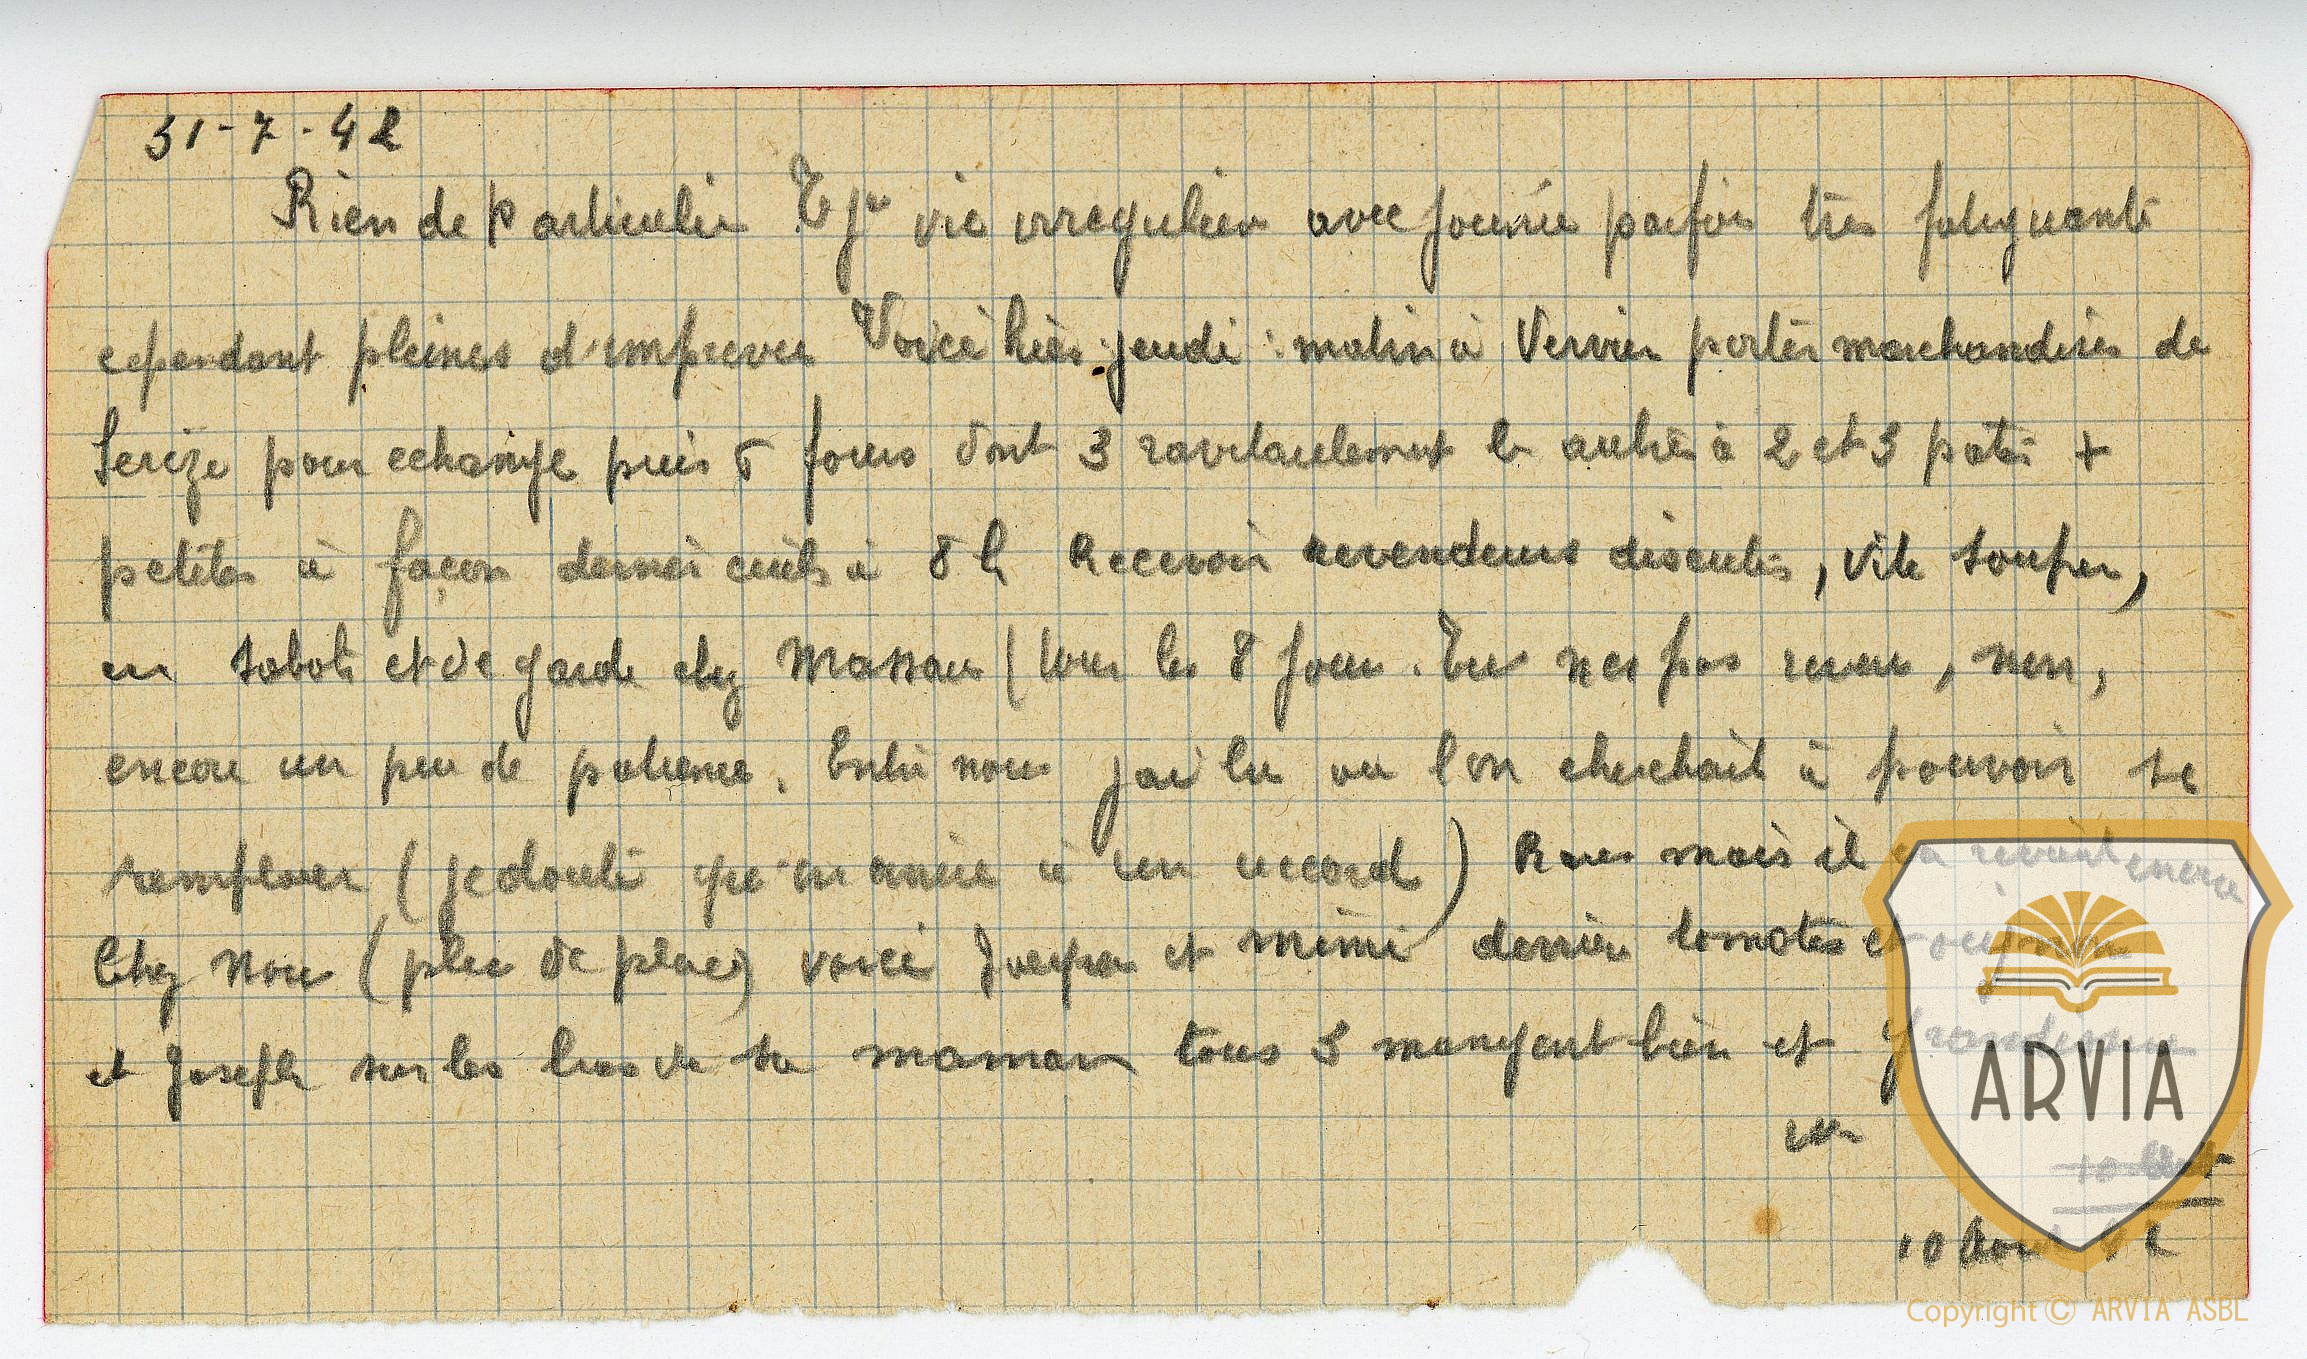 31-7-42
Rien de particulier vie irreguliere avec journée parfois très fatiguante
cependant pleines d'imprevu Voici hier jeudi : matin à Vervier porter marchandises de
pour echange puis 5 fours dont 3 ravitaillement autre à 2 et 3 +
petites à façon dernier cuits à 8 h Recevoir revendeurs discuter, vite souper,
en sabots et de garde chez Massau (tous les 8 jours. Tu n'es pas revenu, non,
encore un peu de patience. Entre nous j'ai lu ou l'on cherchait à pouvoir se
remplacer (je doute qu'on arrive à un accord) mais il en revient encore
Chez Nous (plus de place) voici et mimi derrière tomates et oignon
et Joseph sur les bras de sa maman tous 3 mangent bien et grandissent
10 Aout
10 Aout 42
ARVIA
Copyright © ARVIA ASBL